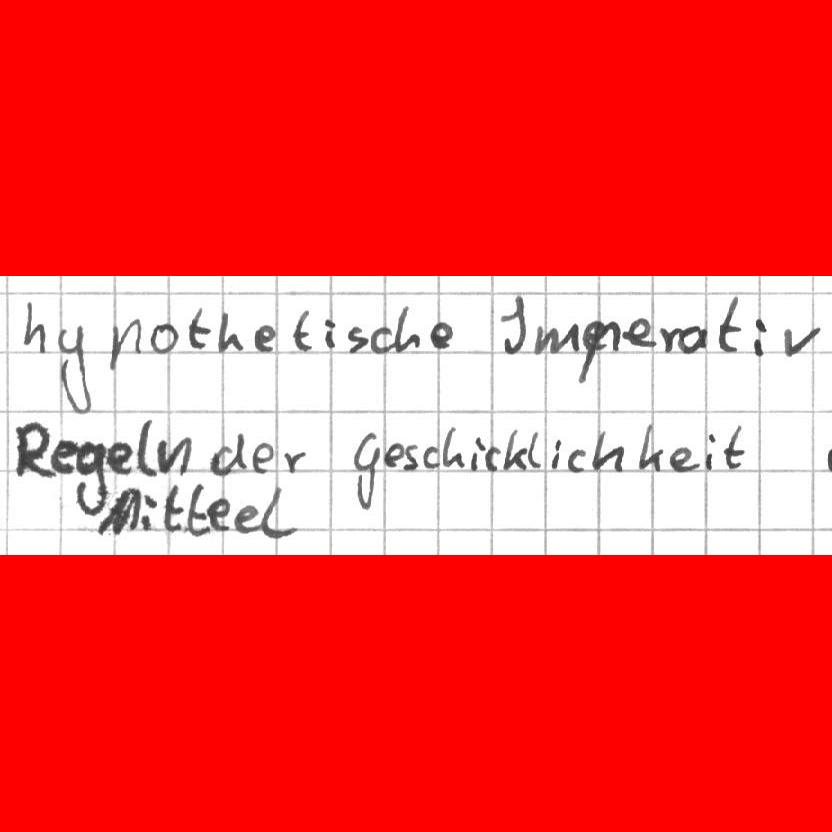 hypothetische Imperativ
Regeln der Geschicklichkeit
Mitteel